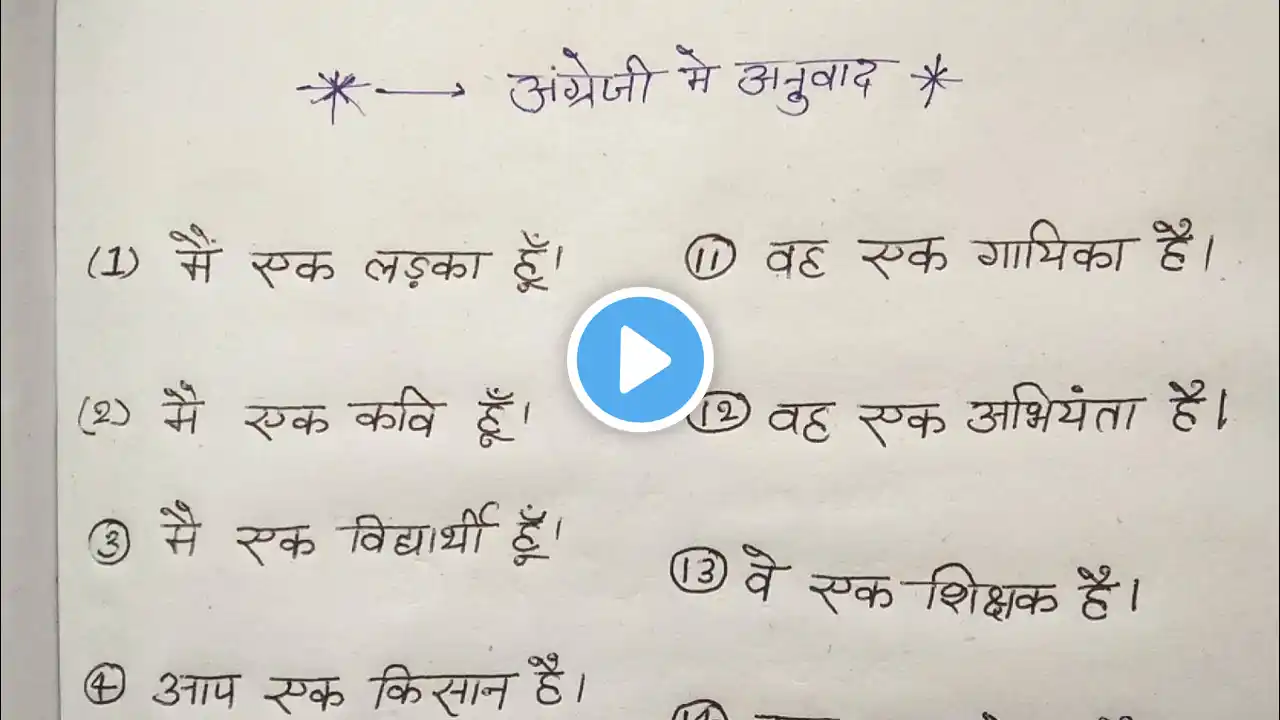 * → अंग्रेजी मे अनुवाद *
(1) मैं एक लड़का हूँ।
(2) मै एक कवि हूँ।
③ मै एक विद्यार्थी हूँ।
④ आप एक किसान है।
⑪ वह एक गायिका है।
⑫ वह एक अभियंता है।
⑬ वे एक शिक्षक है।